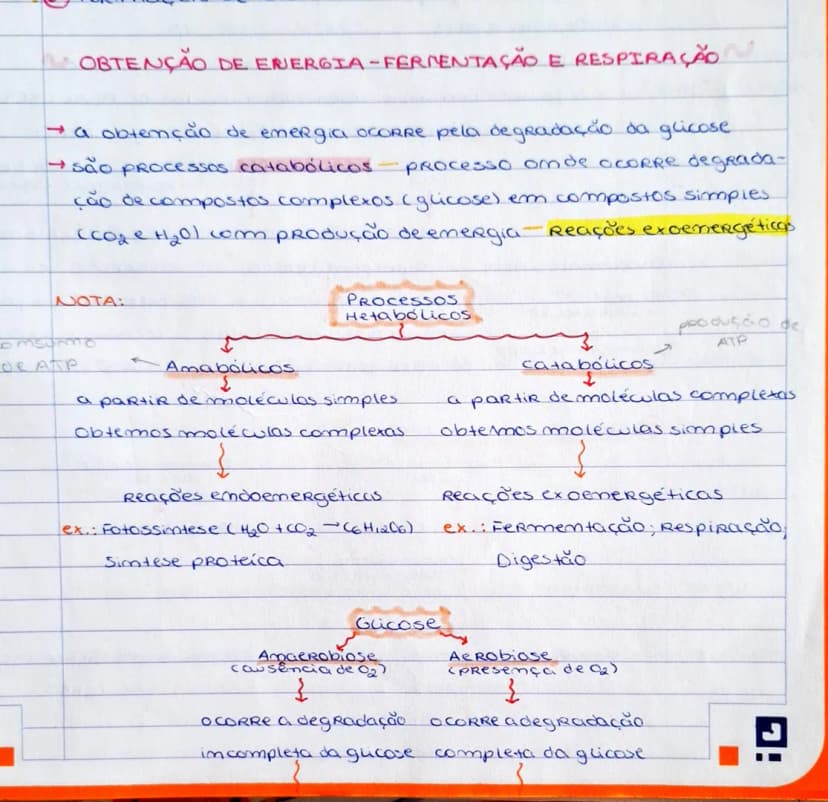 OBTENÇÃO DE ENERGIA - FERMENTAÇÃO E RESPIRAÇÃO
→ a obtenção de energia ocorre pela degradação da glicose
→ são processos catabólicos - processo onde ocorre degrada-
ção de compostos complexos (glicose) em compostos simples
(CO2 e H2O) com produção de energia - Reações exoenergéticas
NOTA:
Processos
Metabólicos
consumo
DE ATP
produção de
ATP
Anabólicos
catabólicos
a partir de moléculas simples
obtemos moléculas complexas
a partir de moléculas complexas
obtemos moléculas simples
Reações endoenergéticas
Reações exoenergéticas
ex.: Fotossíntese (H2O + CO2 → C6H12O6)
Síntese proteíca
ex.: Fermentação; Respiração;
Digestão
Glicose
Anaerobiose
(ausência de O2)
Aerobiose
(presença de O2)
ocorre a degradação
incompleta da glicose
ocorre a degradação
completa da glicose